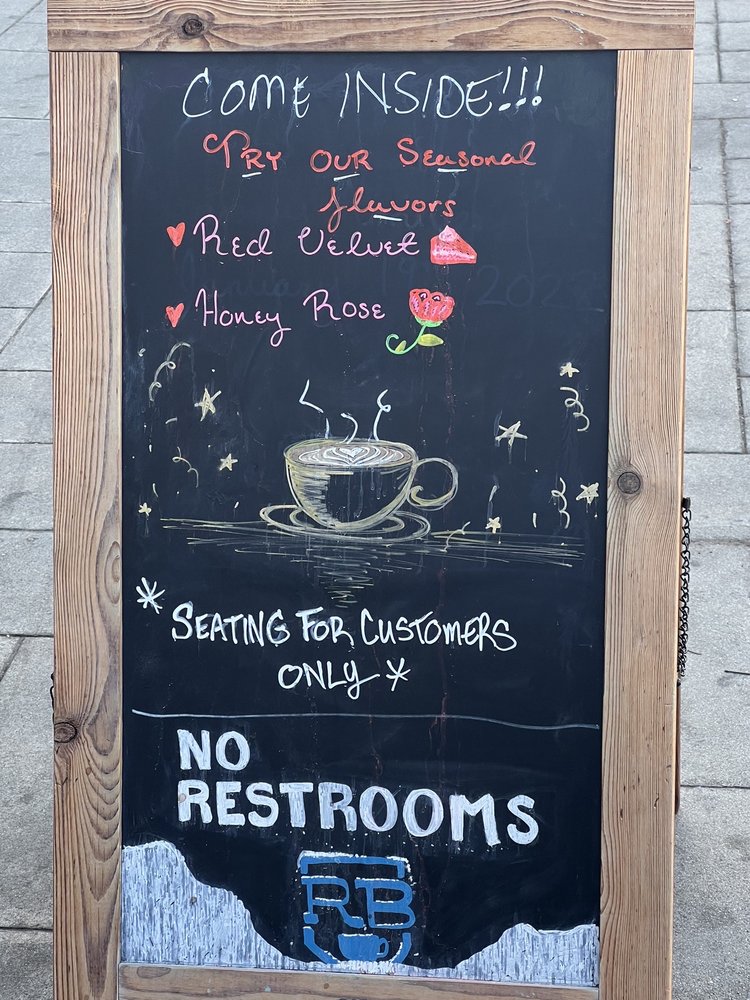 COME INSIDE!!!
TRY OUR Seasonal
flavors
Red Velvet
Honey Rose
* SEATING FOR CUSTOMERS
ONLY *
NO
RESTROOMS
RB